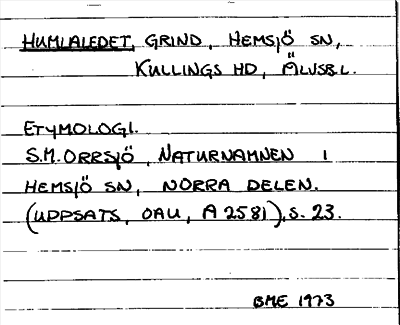 HUMLALEDET, GRIND, HEMSJÖ SN,
KULLINGS HD, ÄLVSB.L.
ETYMOLOGI.
S.M. ORRSJÖ, NATURNAMNEN I
HEMSJÖ SN, NORRA DELEN.
(UPPSATS, OAU, A 2581), S. 23.
BME 1973